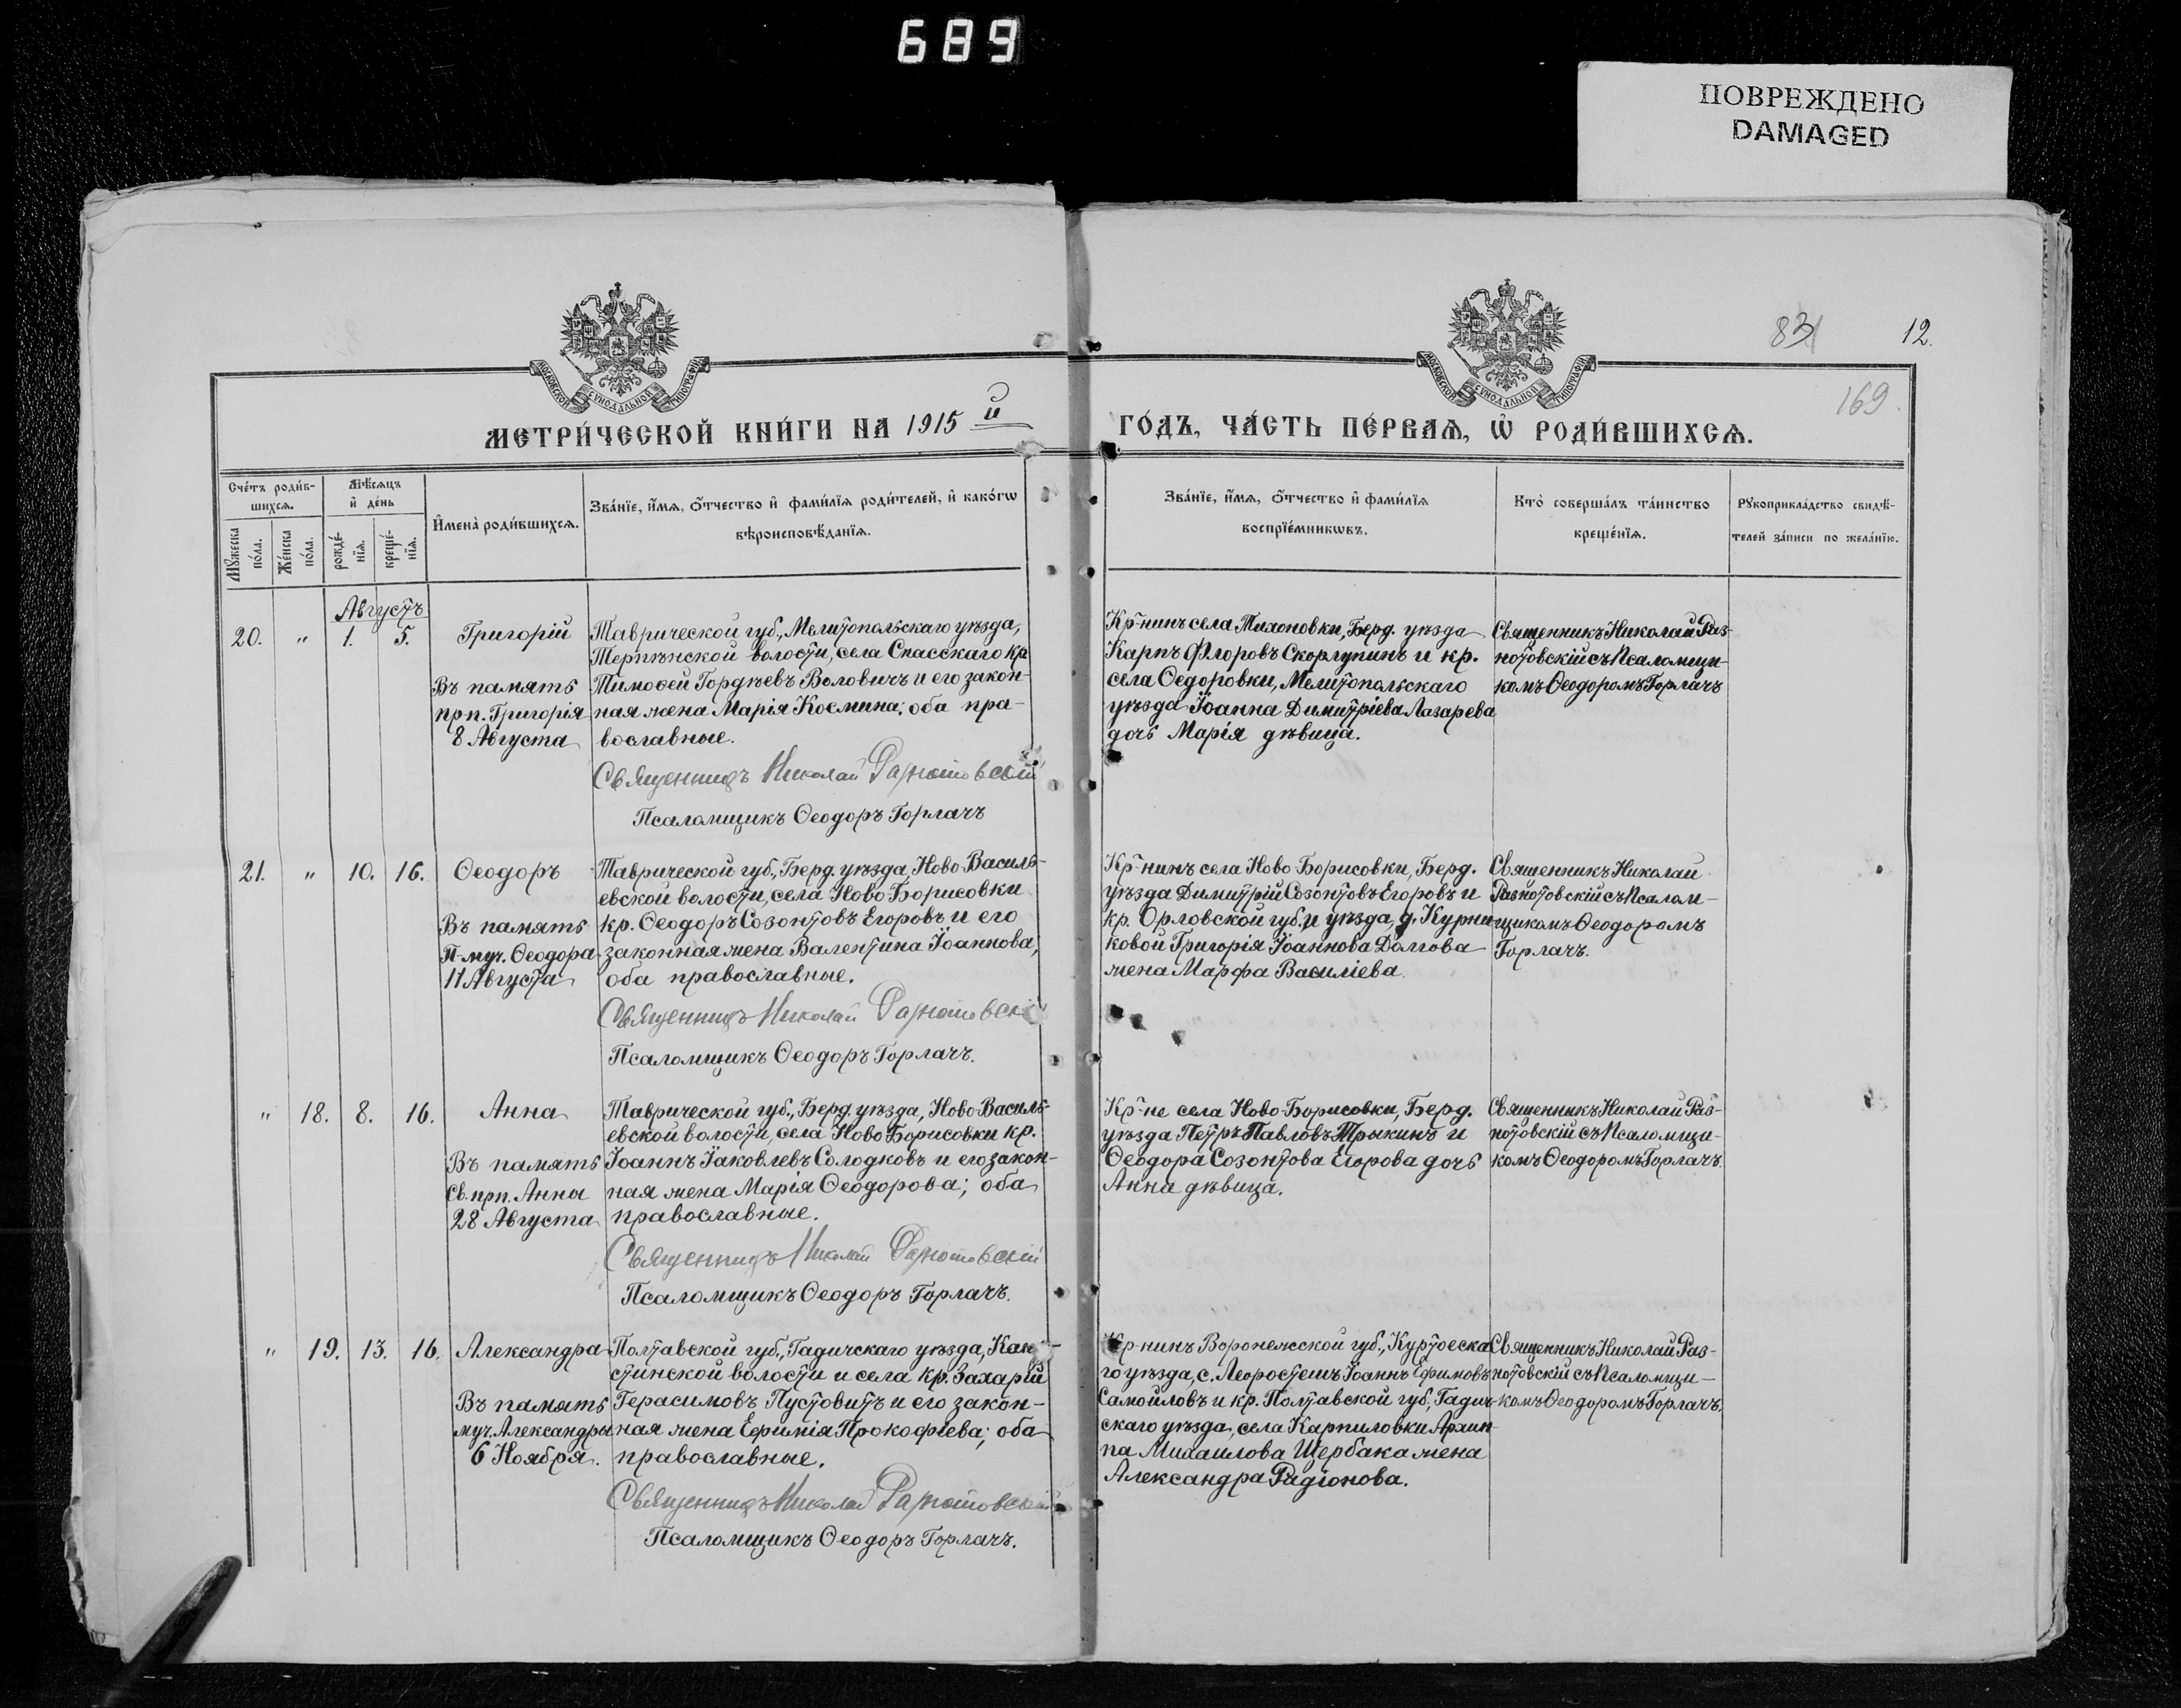 689
ПОВРЕЖДЕНО
DAMAGED
МОСКОВСКОЙ СѴНОДАЛЬНОЙ ТИПОГРАФІИ
МОСКОВСКОЙ СѴНОДАЛЬНОЙ ТИПОГРАФІИ
831
12.
169.
МЕТРИ́ЧЕСКОЙ КНИ́ГИ НА 1915 й
ГО́ДЪ, ЧА́СТЬ ПЕ́РВАѦ, Ѡ҆ РОДИ́ВШИХСѦ.
Сче́тъ роди́в-
шихсѧ.
Мꙋ́жеска
по́ла.
Же́нска
по́ла.
Мѣ́сѧцъ
и҆ де́нь
рожде́-
нїѧ.
креще́-
нїѧ.
И҆мена̀ роди́вшихсѧ.
Зва́нїе, и҆́мѧ, ѻ҆́тчество и҆ фами́лїѧ роди́телей, и҆ како́гѡ
вѣроисповѣ́данїѧ.
Зва́нїе, и҆́мѧ, ѻ҆́тчество и҆ фами́лїѧ
воспрїе́мникѡвъ.
Кто̀ соверша́лъ та́инство
креще́нїѧ.
Рꙋкоприкла́дство свидѣ́-
телей за́писи по жела́нїю.
Августъ
20. " 1. 5.
Григорій
Въ память
прп. Григорія
8 Августа
Таврической губ., Мелитопольскаго уѣзда,
Терпѣнской волости, села Спасскаго кр.
Тимоѳей Гордѣевъ Воловичъ и его закон-
ная жена Марія Космина; оба пра-
вославные.
Священникъ Николай Разнотовскій
Псаломщикъ Ѳеодоръ Горлачъ
Кр-нинъ села Тихоновки, Берд. уѣзда
Карпъ Флоровъ Скорлупинъ и кр.
села Ѳедоровки, Мелитопольскаго
уѣзда Іоанна Димитріева Лазарева
дочь Марія дѣвица.
Священникъ Николай Раз-
нотовскій съ Псаломщи-
комъ Ѳеодоромъ Горлачъ
21. " 10. 16.
Ѳеодоръ
Въ память
П-муч. Ѳеодора
11 Августа
Таврической губ., Берд. уѣзда, Ново-Василь-
евской волости, села Ново Борисовки
кр. Ѳеодоръ Созонтовъ Егоровъ и его
законная жена Валентина Іоаннова;
оба православные.
Священникъ Николай Разнотовскій
Псаломщикъ Ѳеодоръ Горлачъ.
Кр-нинъ села Ново Борисовки, Берд.
уѣзда Димитрій Созонтовъ Егоровъ и
кр. Орловской губ. и уѣзда, д. Курни-
ковой Григорія Іоаннова Долгова
жена Марфа Василіева.
Священникъ Николай
Разнотовскій съ Псалом-
щикомъ Ѳеодоромъ
Горлачъ.
" 18. 8. 16.
Анна
Въ память
Св. прп. Анны
28 Августа
Таврической губ., Берд. уѣзда, Ново Василь-
евской волости, села Ново Борисовки кр.
Іоаннъ Іаковлевъ Солодковъ и его закон-
ная жена Марія Ѳеодорова; оба
православные.
Священникъ Николай Разнотовскій
Псаломщикъ Ѳеодоръ Горлачъ.
Кр-не села Ново-Борисовки, Берд.
уѣзда Петръ Павловъ Трыкинъ и
Ѳеодора Созонтова Егорова дочь
Анна дѣвица.
Священникъ Николай Раз-
нотовскій съ Псаломщи-
комъ Ѳеодоромъ Горлачъ.
" 19. 13. 16.
Александра
Въ память
муч. Александры
6 Ноября.
Полтавской губ., Гадичскаго уѣзда,
стинской волости и села кр. Захарій
Герасимовъ Пустовитъ и его закон-
ная жена Ефимія Прокофіева; оба
православные.
Священникъ Николай Разнотовскій
Псаломщикъ Ѳеодоръ Горлачъ.
Кр-нинъ Воронежской губ.,
го уѣзда, с. Іоаннъ Ефимовъ
Самойловъ и кр. Полтавской губ., Гадич-
скаго уѣзда, села Карпиловки Архип-
па Михаилова Щербака жена
Александра Радіонова.
Священникъ Николай Раз-
нотовскій съ Псаломщи-
комъ Ѳеодоромъ Горлачъ.